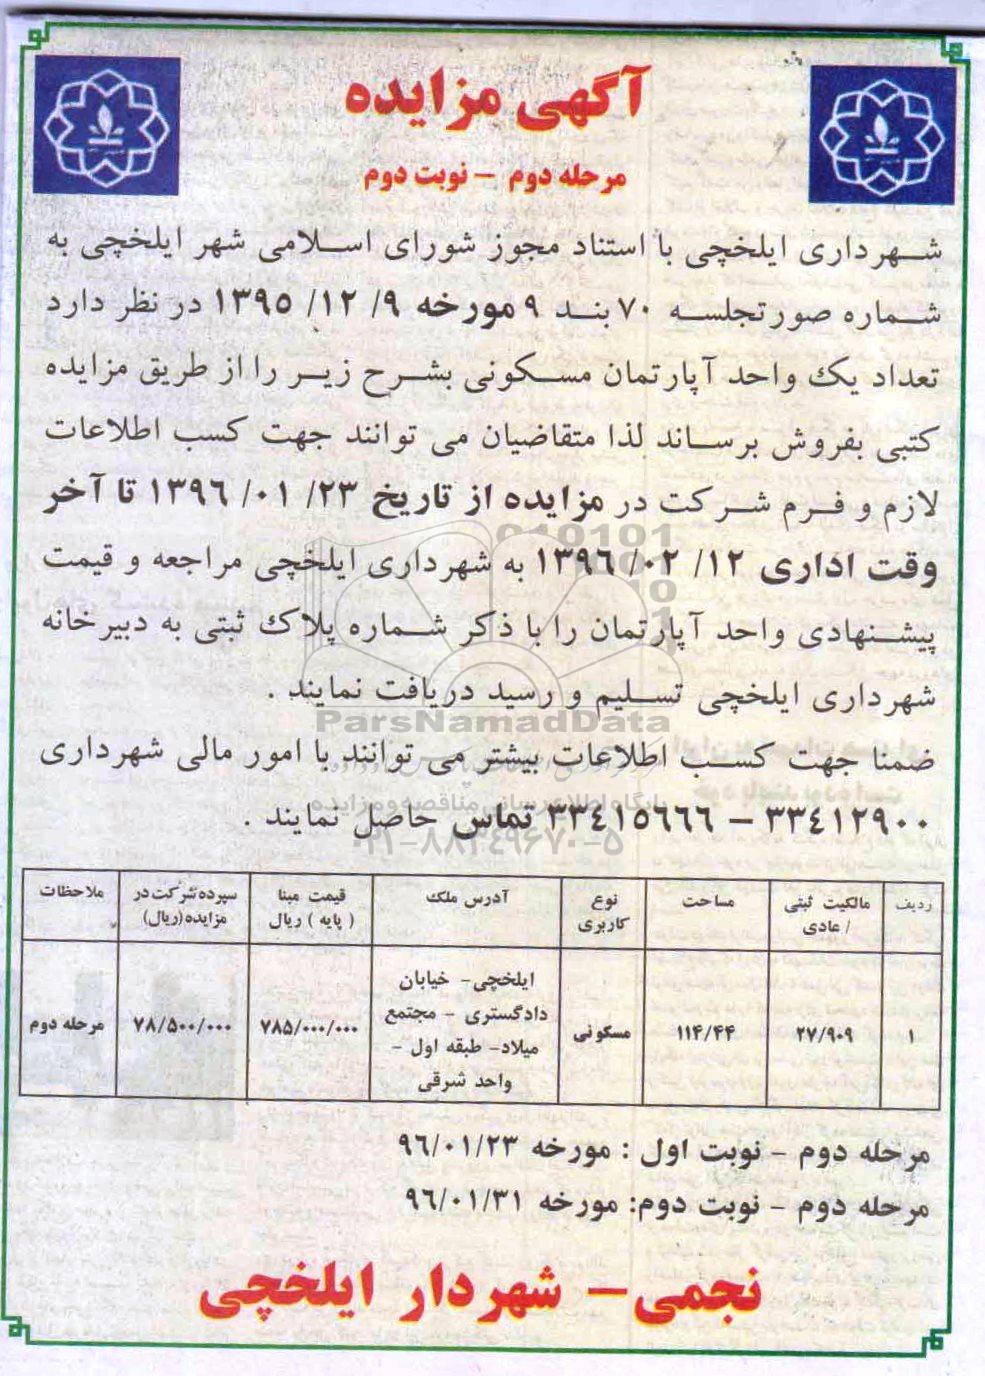 آگهی مزایده
مرحله دوم - نوبت دوم
شهرداری ایلخچی با استناد مجوز شورای اسلامی شهر ایلخچی به
شماره صورتجلسه ۷۰ بند ۹ مورخه ۹/ ۱۲/ ۱۳۹۵ در نظر دارد
تعداد یک واحد آپارتمان مسکونی بشرح زیر را از طریق مزایده
کتبی بفروش برساند لذا متقاضیان می توانند جهت کسب اطلاعات
لازم و فرم شرکت در مزایده از تاریخ ۲۳/ ۰۱/ ۱۳۹۶ تا آخر
وقت اداری ۱۲/ ۰۲/ ۱۳۹۶ به شهرداری ایلخچی مراجعه و قیمت
پیشنهادی واحد آپارتمان را با ذکر شماره پلاک ثبتی به دبیرخانه
شهرداری ایلخچی تسلیم و رسید دریافت نمایند .
ParsNamadData
ضمنا جهت کسب اطلاعات بیشتر می توانند با امور مالی شهرداری
پایگاه اطلاع رسانی مناقصه و مزایده
۳۳۴۱۲۹۰۰ – ۳۳۴۱۵۶۶۶ تماس حاصل نمایند .
۰۲۱-۸۸۳۴۹۶۷۰-۵
ردیف | مالکیت ثبتی / عادی | مساحت | نوع کاربری | آدرس ملک | قیمت مبنا ( پایه ) ریال | سپرده شرکت در مزایده (ریال) | ملاحظات
۱ | ۲۷/۹۰۹ | ۱۱۴/۴۴ | مسکونی | ایلخچی- خیابان دادگستری - مجتمع میلاد- طبقه اول - واحد شرقی | ۷۸۵/۰۰۰/۰۰۰ | ۷۸/۵۰۰/۰۰۰ | مرحله دوم
مرحله دوم - نوبت اول : مورخه ۹۶/۰۱/۲۳
مرحله دوم - نوبت دوم: مورخه ۹۶/۰۱/۳۱
نجمی – شهردار ایلخچی